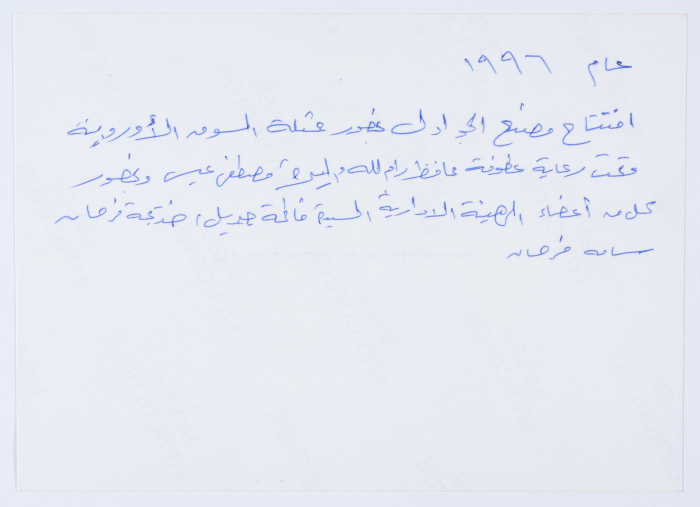 عام ١٩٩٦
افتتاح مصنع الجدادل بحضور ممثلة السوق الأوروبية
وتحت رعاية عطوفة محافظ رام الله والبيرة مصطفى عيسى وبحضور
كل من أعضاء الهيئة الادارية السيدة فاطمة جبريل، خديجة فرحان
سامه فرحان
FUJICOLOR PAPER